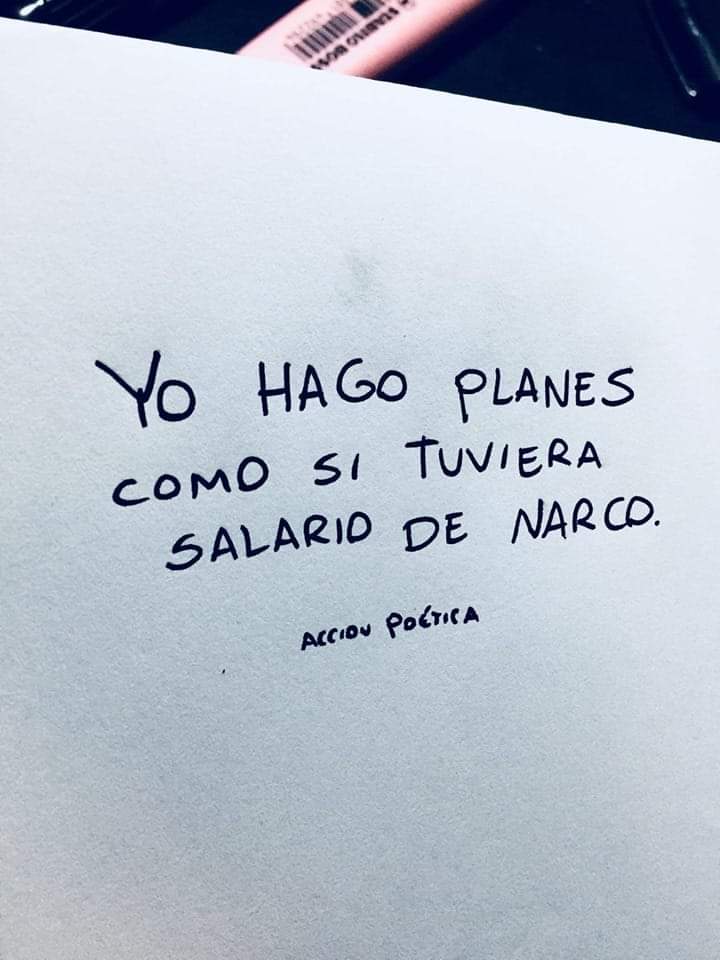 STABILO BOSS
YO HAGO PLANES
COMO SI TUVIERA
SALARIO DE NARCO.
ACCION POÉTICA